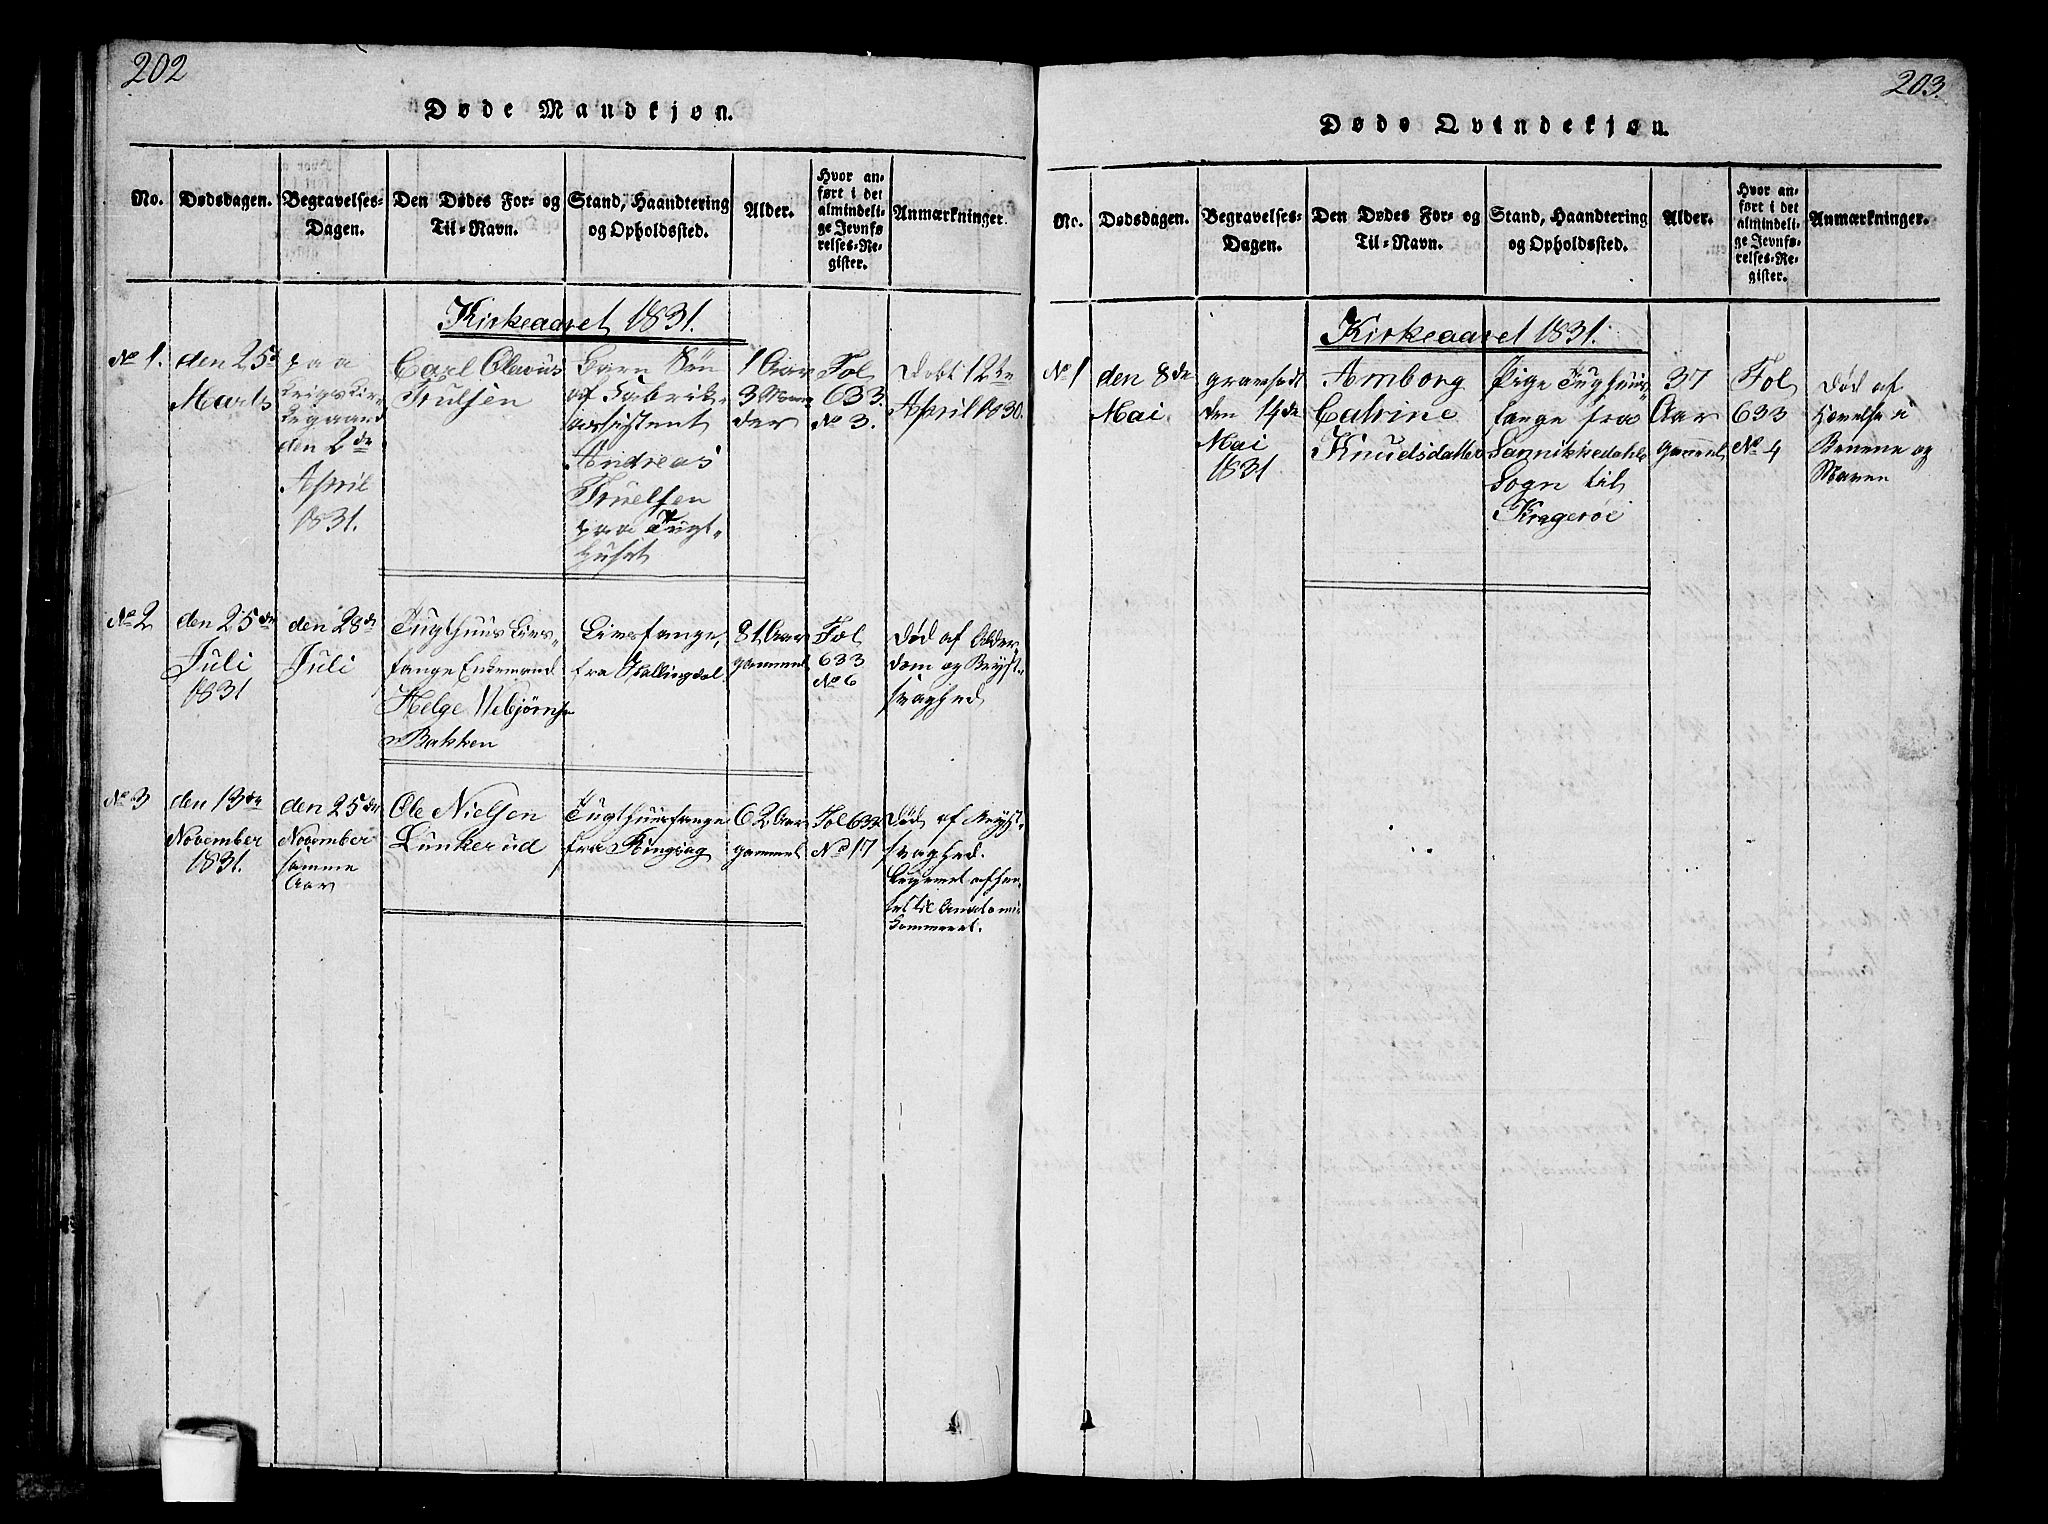 202
Døde Mandkjøn.
No.
Dødsdagen.
Begravelses-
Dagen.
Den Dødes For- og
Til-Navn.
Stand, Haandtering
og Opholdssted.
Alder.
Hvor an-
ført i det
almindeli-
ge Jevnfø-
relses-Re-
gister.
Anmærkninger.
Kirkeaaret 1831.
No 1.
den 25d
Marts
paa
Krigskir-
kegaard
den 2de
April
1831.
Carl Olavus
Trulsen
Barn Søn
af Fabrik-
assistent
Andreas
Truelsen
paa Tugt-
Huset
1 Aar
3 Maane
der
Fol
633.
No 3.
Døbt 12te
April 1830.
No 2
den 25de
Juli
1831
den 28de
Juli
Tugthuus Livs-
fange Enkemand
Helge Webjørnsen
Bakken
Livsfange,
fra Hallingdal
81 Aar
gammel
Fol
633
No 6
Død af Alder
dom og Bryst-
svaghed
No 3
den 13de
November
1831.
den 25de
November
samme
Aar
Ole Nielsen
Lunkerud
Tugthuusfange
fra Ringsag
62 Aar
gammel
Fol 633
No 17
Død af Bryst-
svaghed.
Legemet afhen-
tet til Anatomi-
Kammeret.
203.
Døde Qvindekjøn.
No.
Dødsdagen.
Begravelses-
Dagen.
Den Dødes For- og
Til-Navn.
Stand, Haandtering
og Opholdssted.
Alder.
Hvor an-
ført i det
almindeli-
ge Jevnfø-
relses-Re-
gister.
Anmærkninger.
Kirkeaaret 1831.
No 1
den 8de
Mai.
gravsadt
den 14de
Mai
1831
Amborg
Catrine
Knudsdatter
Pige Tugthuus-
fange fra
Sannikkedahls
Sogn til
Kragerøe
37
Aar
gammel
Fol
633
No 4
Død af
Hævelse i
Benene og
Maven